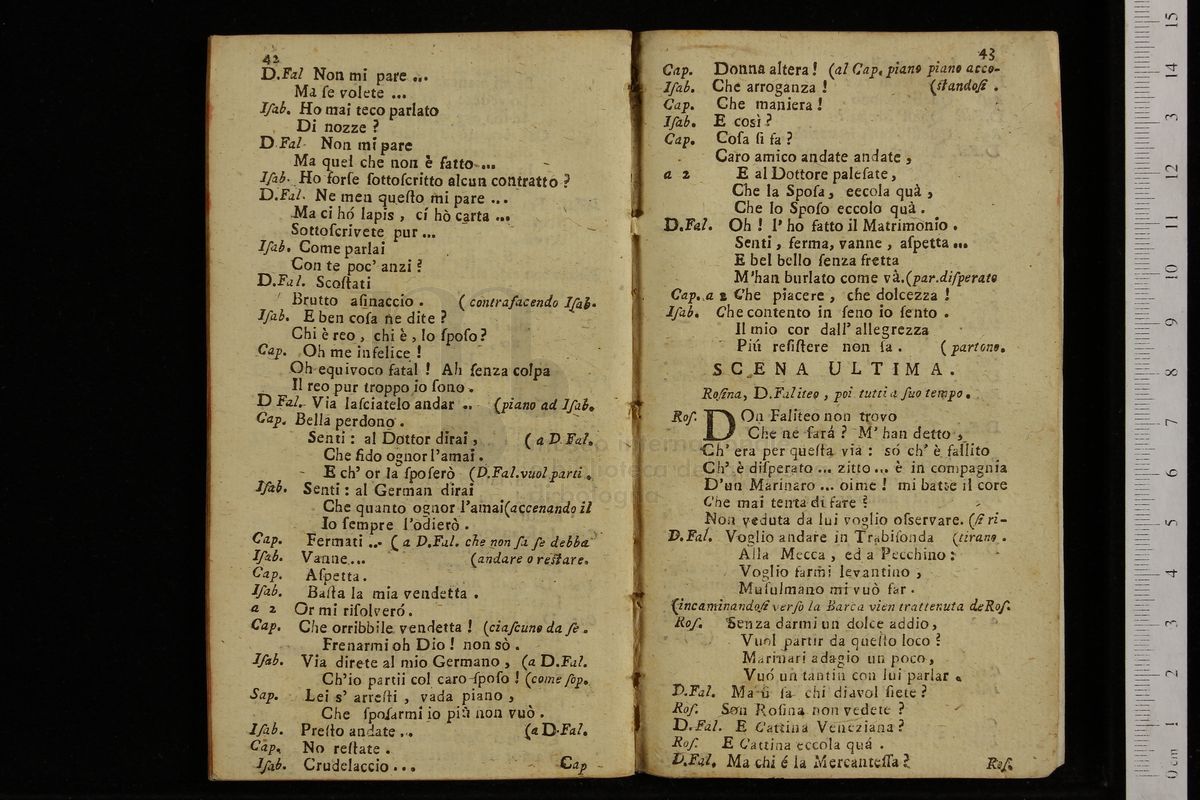 42
D.Fal Non mi pare ...
Ma ſe volete ...
Iſab. Ho mai teco parlato
Di nozze ?
D.Fal. Non mi pare
Ma quel che non è fatto ...
Iſab. Ho forſe ſottoſcritto alcun contratto ?
D.Fal. Ne men queſto mi pare ...
Ma ci hó lapis , cí hò carta ...
Sottoſcrivete pur ...
Iſab. Come parlai
Con te poc' anzi ?
D.Fal. Scoſtati
Brutto aſinaccio . ( contrafacendo Iſab.
Iſab. E ben coſa ne dite ?
Chi è reo , chi è , lo ſpoſo ?
Cap. Oh me infelice !
Oh equivoco fatal ! Ah ſenza colpa
Il reo pur troppo io ſono .
D Fal. Via laſciatelo andar .. (piano ad Iſab.
Cap. Bella perdono .
Senti : al Dottor dirai , ( a D Fal.
Che fido ognor l'amai .
E ch' or la ſpoſerò (D.Fal.vuol parti .
Iſab. Senti : al German dirai
Che quanto ognor l'amai(accenando il
Io ſempre l'odierò .
Cap. Fermati ... ( a D.Fal. che non ſa ſe debba
Iſab. Vanne ... (andare o reſtare.
Cap. Aſpetta .
Iſab. Baſta la mia vendetta .
a 2 Or mi riſolveró .
Cap. Che orribbile vendetta ! (ciaſcuno da ſe .
Frenarmi oh Dio ! non sò .
Iſab. Via direte al mio Germano , (a D.Fal.
Ch'io partii col caro ſpoſo ! (come ſop.
Sap. Lei s' arreſti , vada piano ,
Che ſpoſarmi io più non vuò .
Iſab. Preſto andate ... (a D.Fal.
Cap. No reſtate .
Iſab. Crudelaccio ... Cap
43
Cap. Donna altera ! (al Cap. piano piano acco-
Iſab. Che arroganza ! (ſtandoſi .
Cap. Che maniera !
Iſab. E così ?
Cap. Coſa ſi fa ?
Caro amico andate andate ,
a 2 E al Dottore paleſate ,
Che la Spoſa , eecola quà ,
Che lo Spoſo eccolo quà .
D.Fal. Oh ! l' ho fatto il Matrimonio .
Senti , ferma, vanne , aſpetta ...
E bel bello ſenza fretta
M'han burlato come và.(par.diſperato
Cap. a 2 Che piacere , che dolcezza !
Iſab. Che contento in ſeno io ſento .
Il mio cor dall' allegrezza
Piú reſiſtere non ſa . ( partono.
SCENA ULTIMA.
Roſina, D.Faliteo , poi tutti a ſuo tempo .
Roſ. DOn Faliteo non trovo
Che ne ſará ? M' han detto ,
Ch' era per queſta via : só ch' è fallito
Ch' è diſperato ... zitto ... è in compagnia
D'un Marinaro ... oime ! mi batte il core
Che mai tenta di fare ?
Non veduta da lui voglio oſservare. (ſi ri-
D.Fal. Voglio andare in Trabiſonda (tirano .
Alla Mecca , ed a Pecchino :
Voglio farmi levantino ,
Muſulmano mi vuò far .
(incaminandoſi verſo la Barca vien trattenuta de Roſ.
Roſ. Senza darmi un dolce addio,
Vuol partir da queſto loco ?
Marinari adagio un poco,
Vuó un tantin con lui parlar .
D.Fal. Ma ſi ſa chi diavol ſiete ?
Roſ. Son Roſina non vedete ?
D.Fal. E Cattina Veneziana ?
Roſ. E Cattina eccola quá .
D.Fal. Ma chi é la Mercanteſſa ? Roſ.